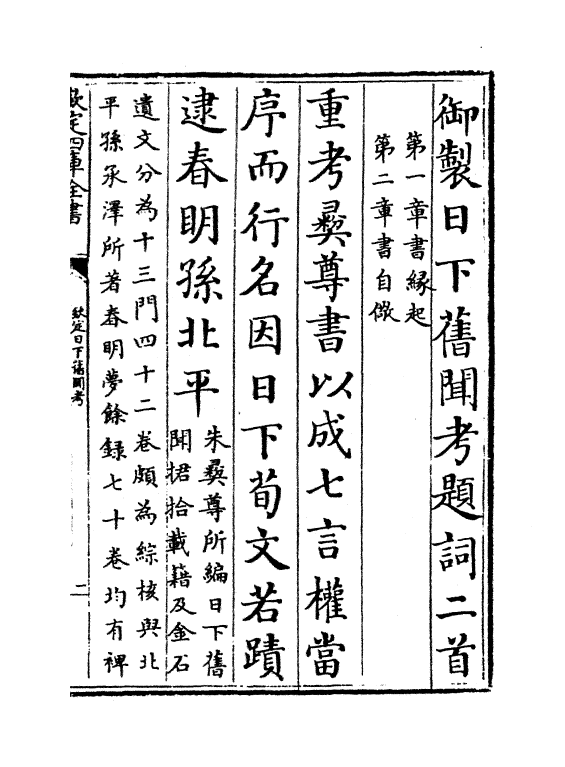 御製日下舊聞考題詞二首
第一章書緣起
第二章書自儆
重考彝尊書以成七言權當
序而行名因日下荀文若蹟
逮春明孫北平
朱彝尊所編日下舊
聞捃拾載籍及金石
遺文分為十三門四十二卷頗為綜核與北
平孫承澤所著春明夢餘錄七十卷均有裨
欽定四庫全書
欽定日下舊聞考
二